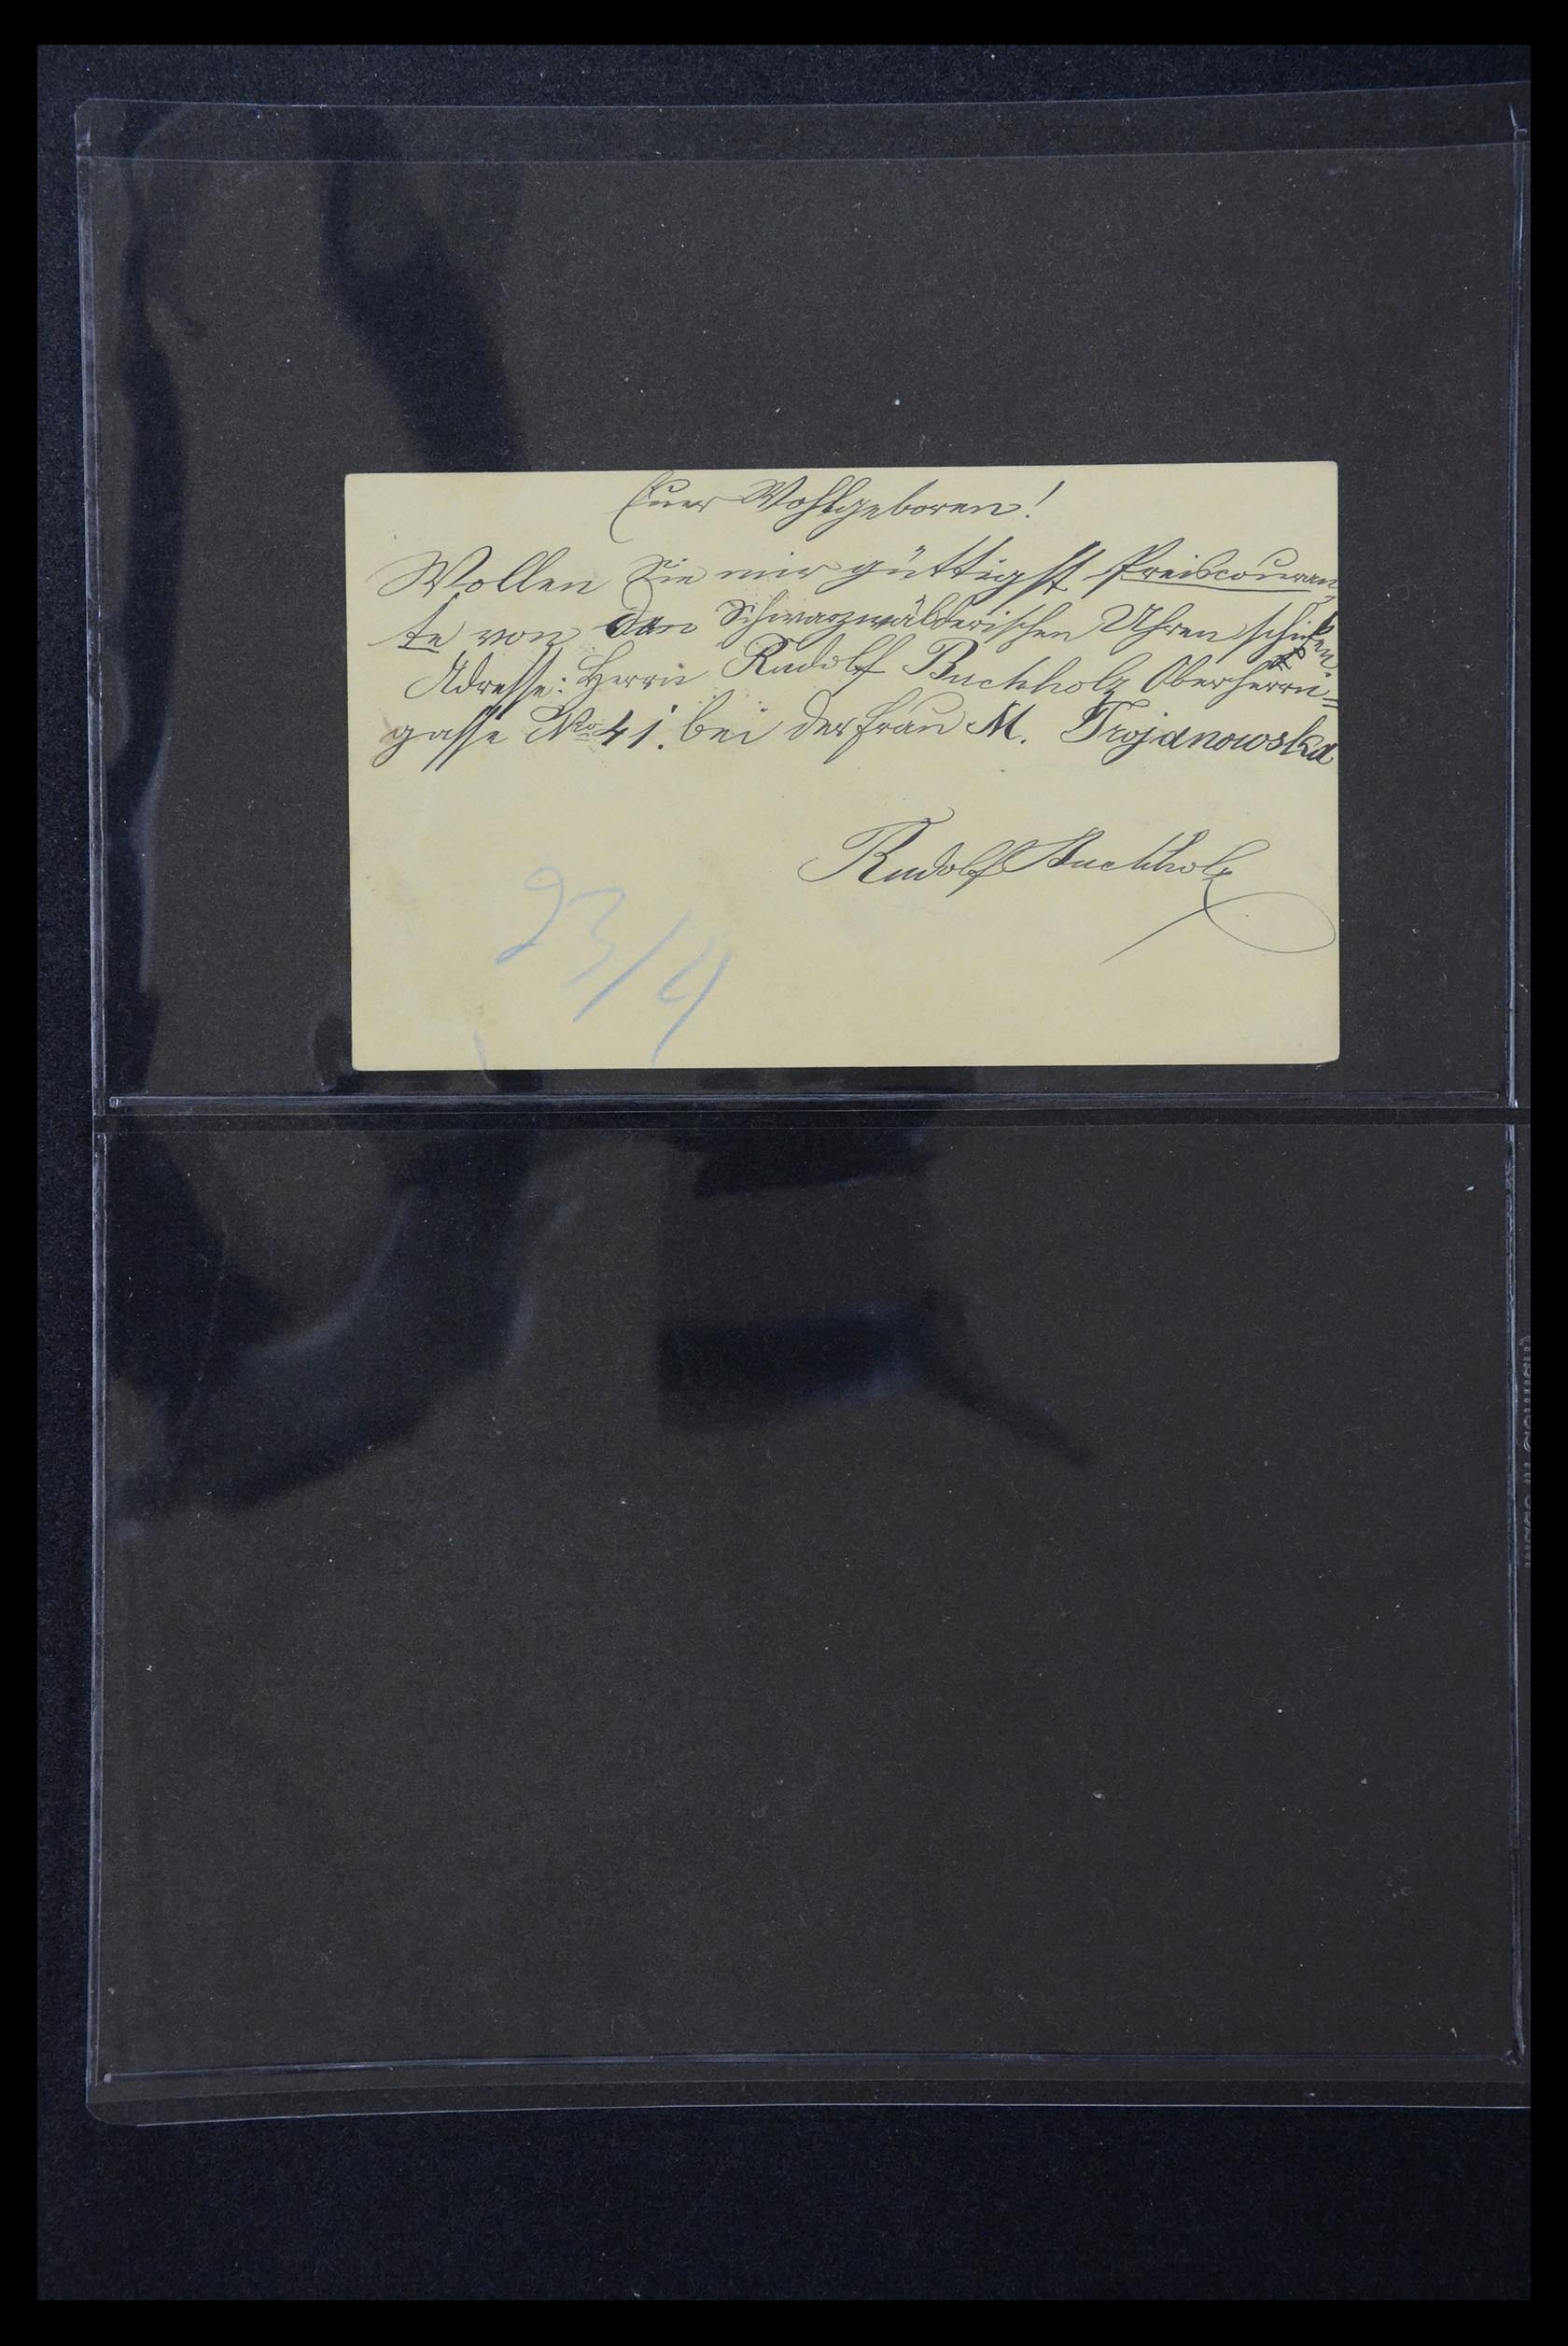 Euer Wohlgeboren!
Wollen Sie mir güttigst Preiscouran-
te von den Schwarzwälderischen Uhren schicken
Adresse: Herrn Rudolf Buchholz Oberherrn=
gasse No 41. bei der Frau M. Trojanowska
Rudolf Buchholz
23/4